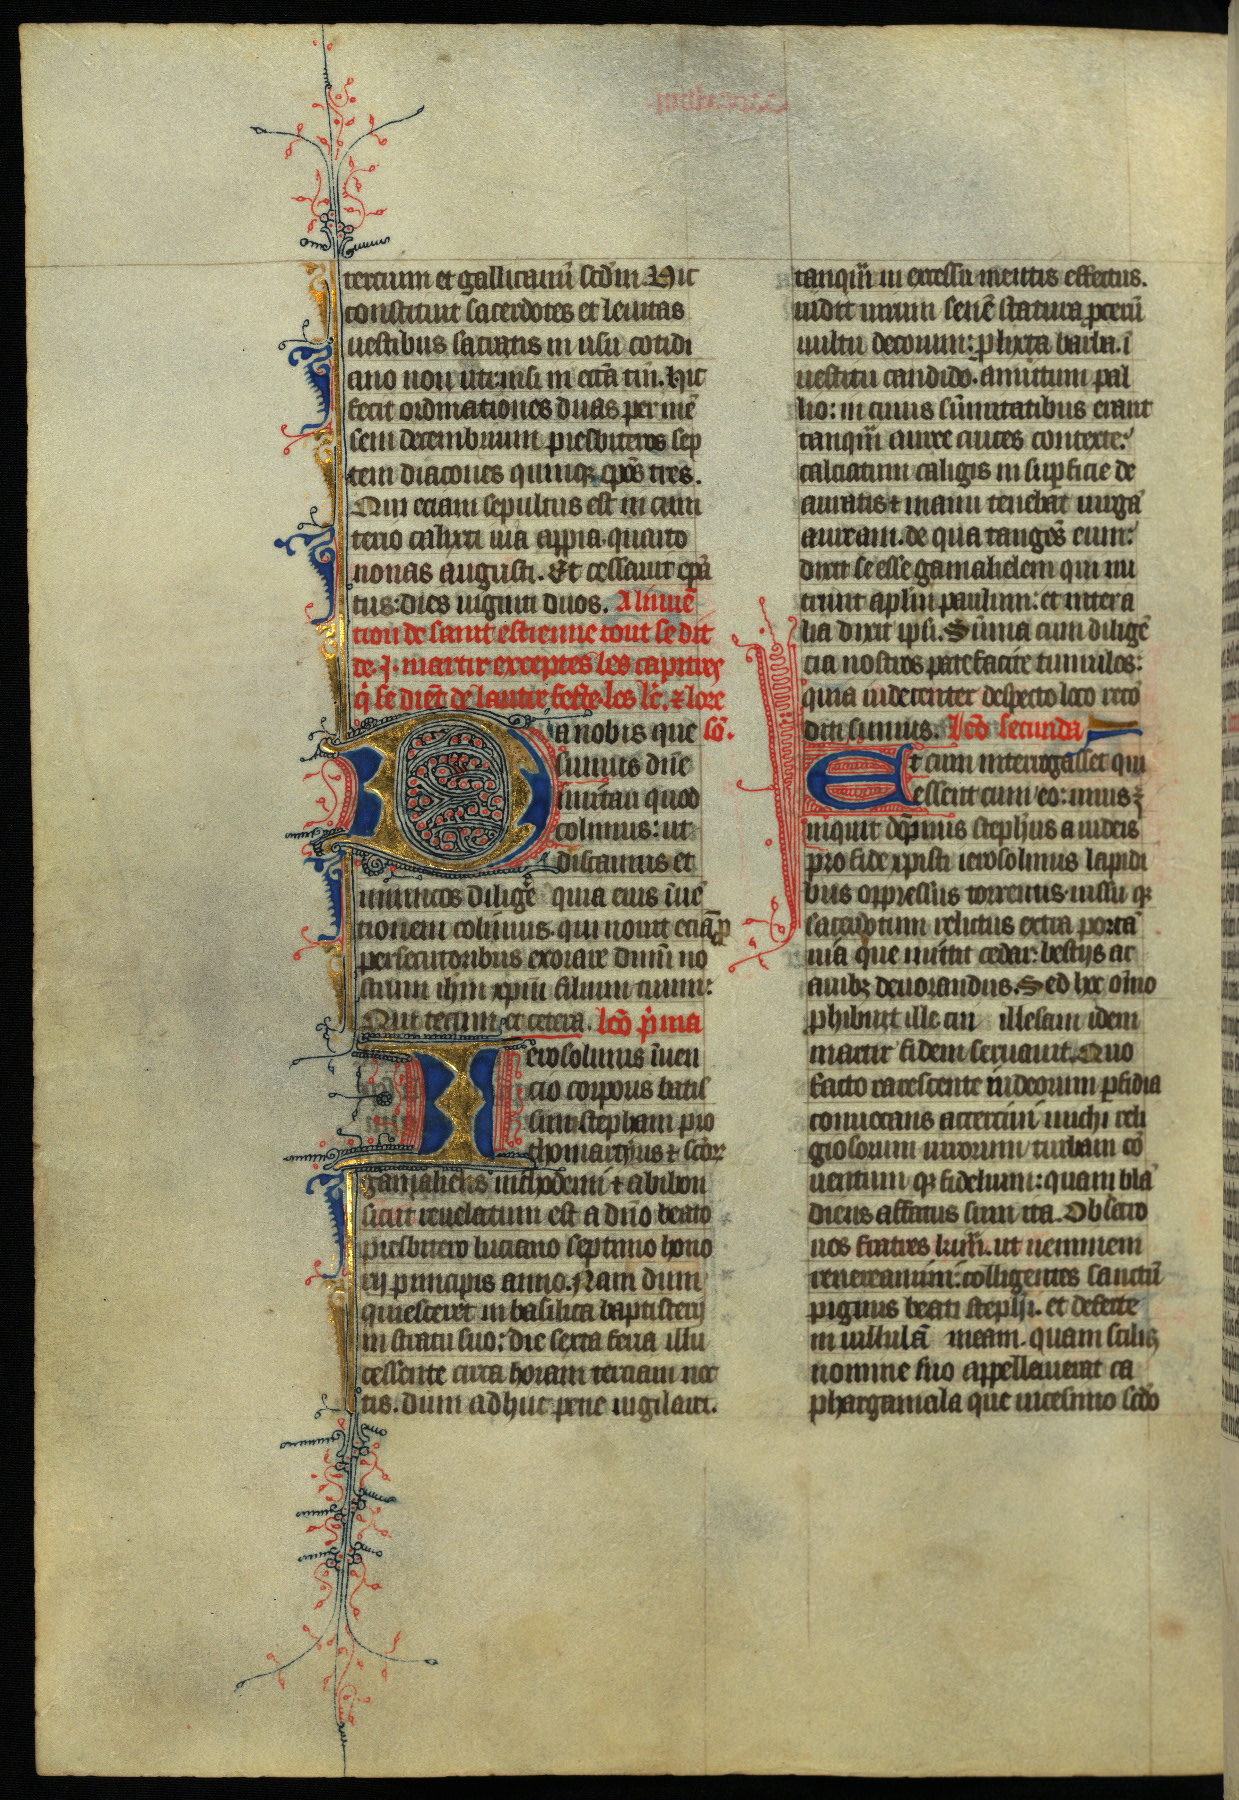 tercium et gallicanū scdm. Hic
constituit sacerdotes et leuitas
uestibus sacratis in usu cotidi
ano non uti: nisi in ecc̄ia tm̄. Hic
fecit ordinationes duas per mē
sem decembrium presbiteros sep
tem diacones quinqꝫ ep̄os tres.
Qui eciam sepultus est in cimi
terio calixti uia appia. quarto
nonas augusti. Et cessauit epā
tus: dies uiginti duos. A linuē
tion de saint estienne tout se dit
de .j. martir exceptes les capitres
q̄ se diēt de lautre feste. les lc̄. ⁊ lore
Da nobis que sō.
sumus dn̄e
imitari quod
colimus: ut
discamus et
inimicos diligē quia eius iuē
tionem colimus. qui nouit eciā p̄
persecutoribus exorare dn̄m no
strum ihm xpm filium tuum:
Qui tecum et cetera. lcō p̄ma
Ierosolimis inuen
cio corporis btis
simi stephani pro
thomartyris ⁊ scōr
gamalielis nichodemi ⁊ abibon
sicut reuelatum est a dn̄o beato
presbitero luciano septimo hono
rij principis anno. Nam dum
quiesceret in basilica baptisterij
in stratu suo: die sexta feria illu
cessente circa horam terciam noc
tis. dum adhuc pene uigilaret.
tanqm̄ in excessu mentis effectus.
uidit uirum senē statura p̄cerū
uultu decorum: plixta barba. ī
uestitu candido. amictum pal
lio: in cuius sūmitatibus erant
tanqm̄ auree cruces contexte:
calciatum caligis in supficie de
auratis ⁊ manu tenebat uirgā
auream. de qua tangēs eum:
dixit se esse gamalielem qui nu
triuit aplm paulum: et intera
lia dixit ipsi. Sūma cum diligē
cia nostros patefacite tumulos:
quia indecenter despecto loco reco
diti sumus. Lcō secunda
Et cum interrogasset qui
essent cum eo: unus ꝫ
inquit dōpnus stephus a iudeis
pro fide xpisti ierosolimis lapidi
bus oppressus torrentis. iussu qꝫ
sacerdotum relictus extra portā
uiā que mittit cedar: bestijs ac
auibꝫ deuorandus. Sed hec om̄o
phibuit ille cui illesam idem
martir fidem seruauit. Quo
facto cacescente iudeorum pfidia
conuocans accerciui michi reli
giosorum uirorum turbam cō
uentum qꝫ fidelium: quam blā
diens affatus sum ita. Obsecro
uos fratres krm̄i. ut neminem
reuereamini: colligentes sanctū
pignus beati stephi. et deferte
in uillulā meam. quam scilicꝫ
nomine suo appellauerat ca
phargamala que uicesimo scdo